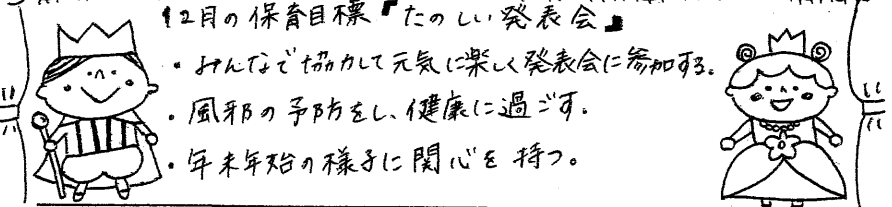 12月の保育目標『たのしい発表会』
・みんなで協力して元気に楽しく発表会に参加する。
・風邪の予防をし、健康に過ごす。
・年末年始の様子に関心を持つ。